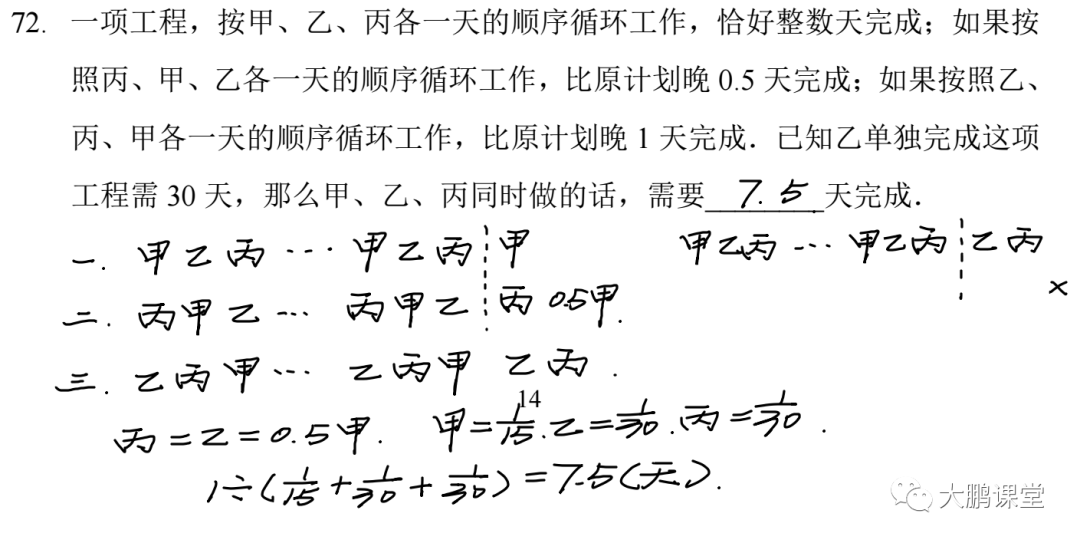 72. 一项工程，按甲、乙、丙各一天的顺序循环工作，恰好整数天完成；如果按
照丙、甲、乙各一天的顺序循环工作，比原计划晚 0.5 天完成；如果按照乙、
丙、甲各一天的顺序循环工作，比原计划晚 1 天完成．已知乙单独完成这项
工程需 30 天，那么甲、乙、丙同时做的话，需要 7.5 天完成．
一. 甲乙丙…甲乙丙 甲 甲乙丙…甲乙丙 乙丙
二. 丙甲乙…丙甲乙 丙 0.5甲. ×
三. 乙丙甲…乙丙甲 乙丙.
14
丙=乙=0.5甲. 甲=1/15.乙=1/30.丙=1/30.
1÷(1/15+1/30+1/30)=7.5(天).
大鹏课堂